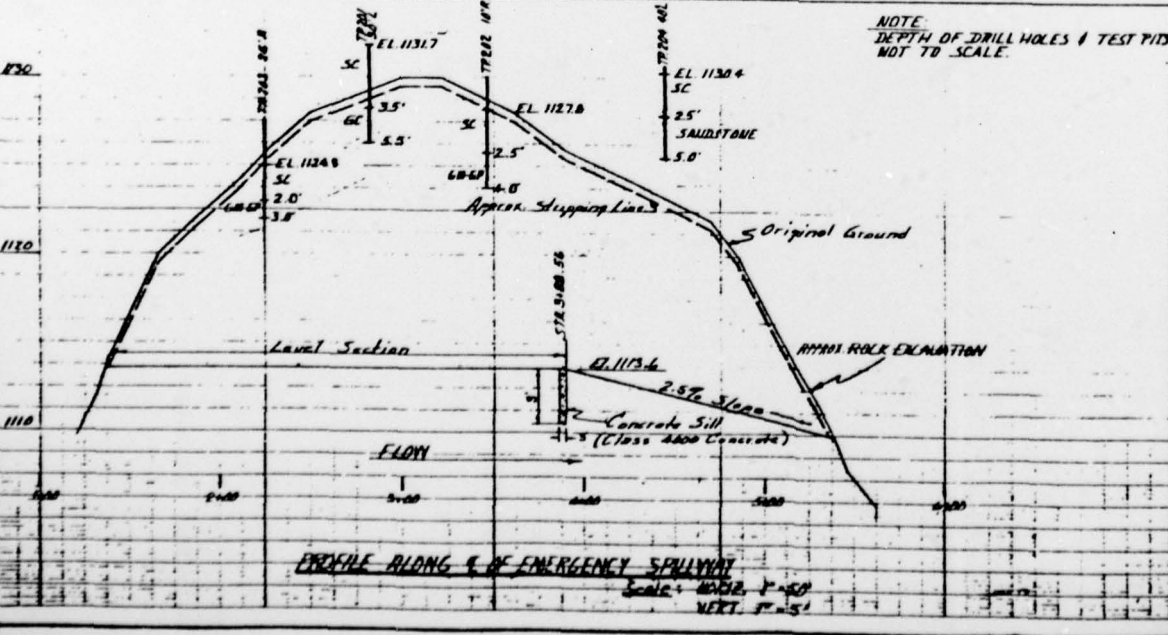 NOTE:
DEPTH OF DRILL HOLES & TEST PITS
NOT TO SCALE.
1130
1120
1110
26' R
EL. 1124.8
SC
2.0'
GM-GP
3.0'
TP 201
EL. 1131.7
SC
3.5'
GC
5.5'
TP 202 10' R
EL. 1127.8
SC
2.5'
GM-GP
4.0'
TP 204 40 L
EL. 1130.4
SC
2.5'
SANDSTONE
5.0'
Approx. Stripping Line
Original Ground
APPROX. ROCK EXCAVATION
Level Section
EL. 1113.6
2.5% Slope
Concrete Sill
(Class 4000 Concrete)
FLOW
2+00
3+00
4+00
5+00
6+00
PROFILE ALONG ℄ OF EMERGENCY SPILLWAY
Scale: HORIZ. 1" = 50'
VERT. 1" = 5'